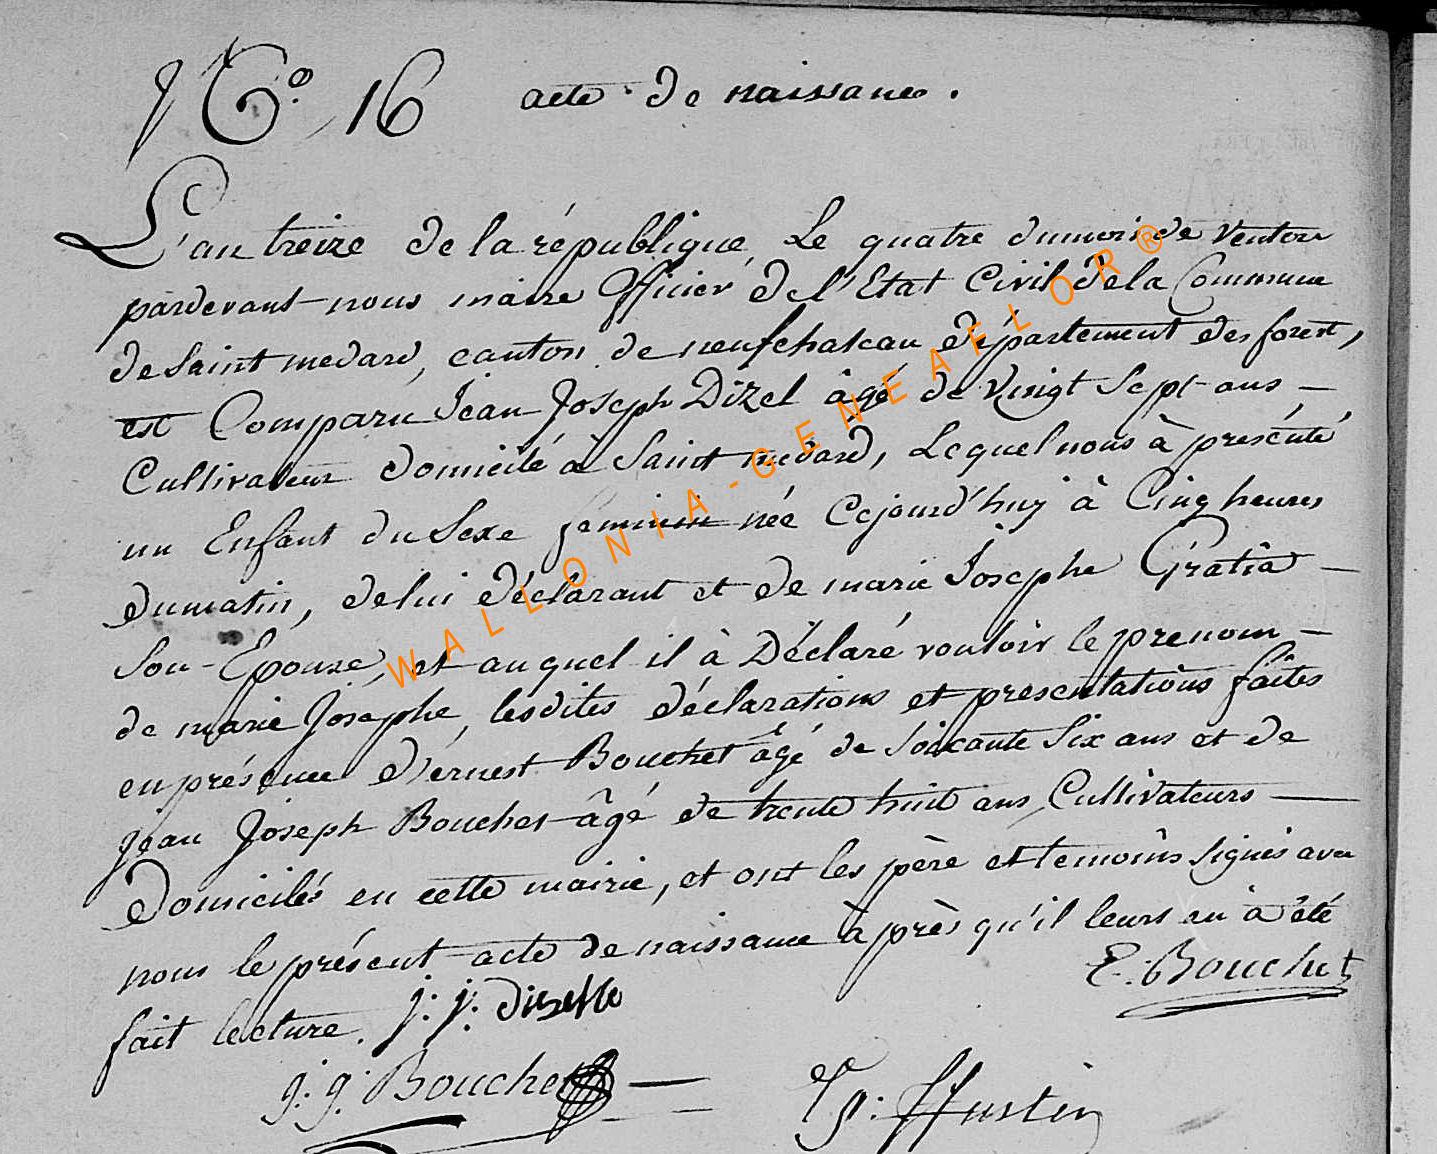 N° 16 acte de naissance.
L'an treize de la république, Le quatre du mois de Ventose
pardevant nous maire Officier de l'Etat Civil de la Commune
de Saint medard, canton de neufchateau département des forest,
est Comparu Jean Joseph Dizel âgé de Vingt Sept ans —
Cultivateur domicilé à Saint medard, Lequel nous à presénté
un Enfant du Sexe feminin née Cejourd'huy à Cinq heures
du matin, de lui déclarant et de marie Josephe Gratia —
Son Epouse, et auquel il à Déclaré vouloir le prenom —
de marie Josephe, lesdites déclarations et presentations faites
en présence d'érnest Bouchet âgé de Soixante Six ans et de
jean Joseph Bouchet âgé de trente huit ans Cultivateurs —
Domicilés en cette mairie, et ont les père et temoins signés avec
nous le présent acte de naissance à près qu'il leurs en à été
fait lecture. j: j: dizelle
E: Bouchet
j: j: Bouchet —
Hustin
WALLONIA-GENEAFLOR®